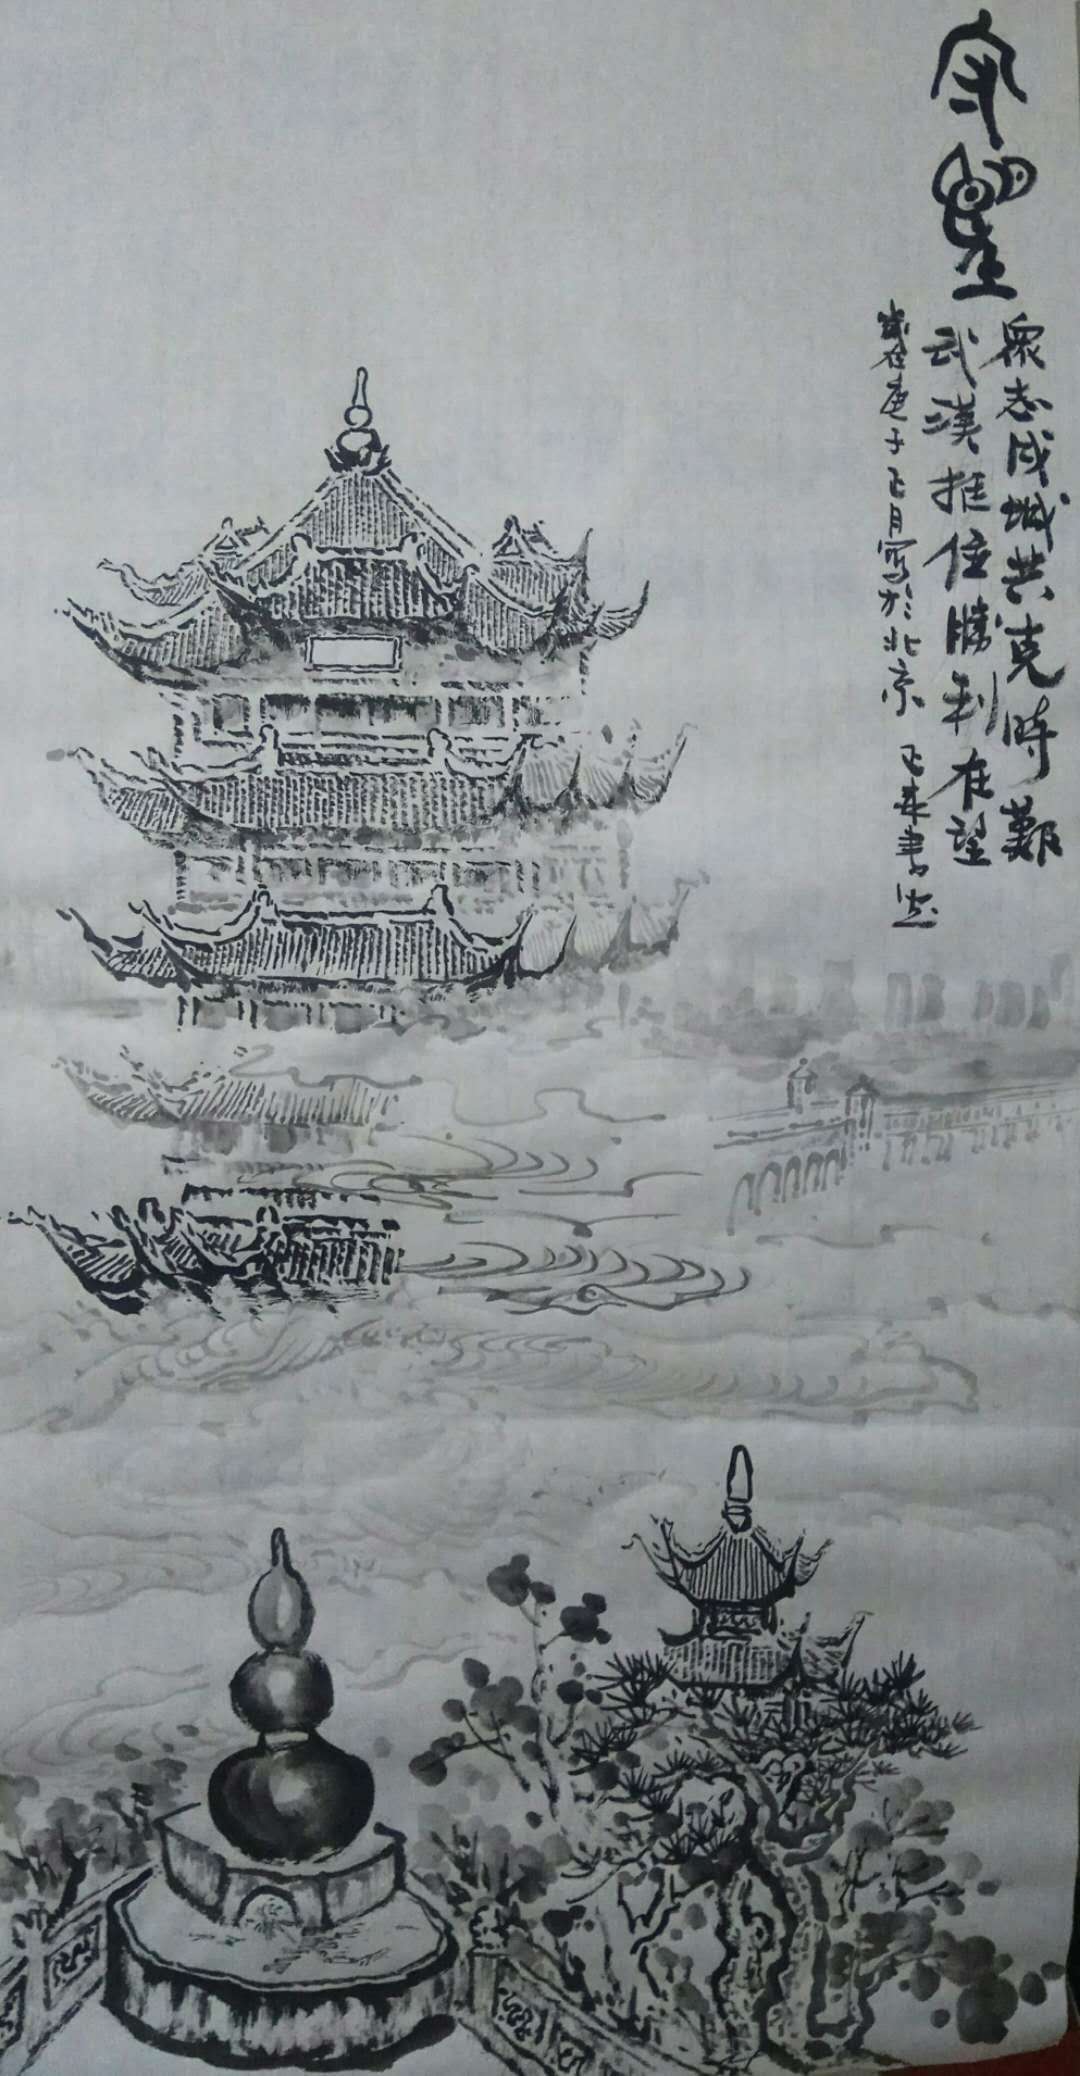 守望
衆志成城共克時艱
武漢挺住勝利在望
歲在庚子正月写於北京